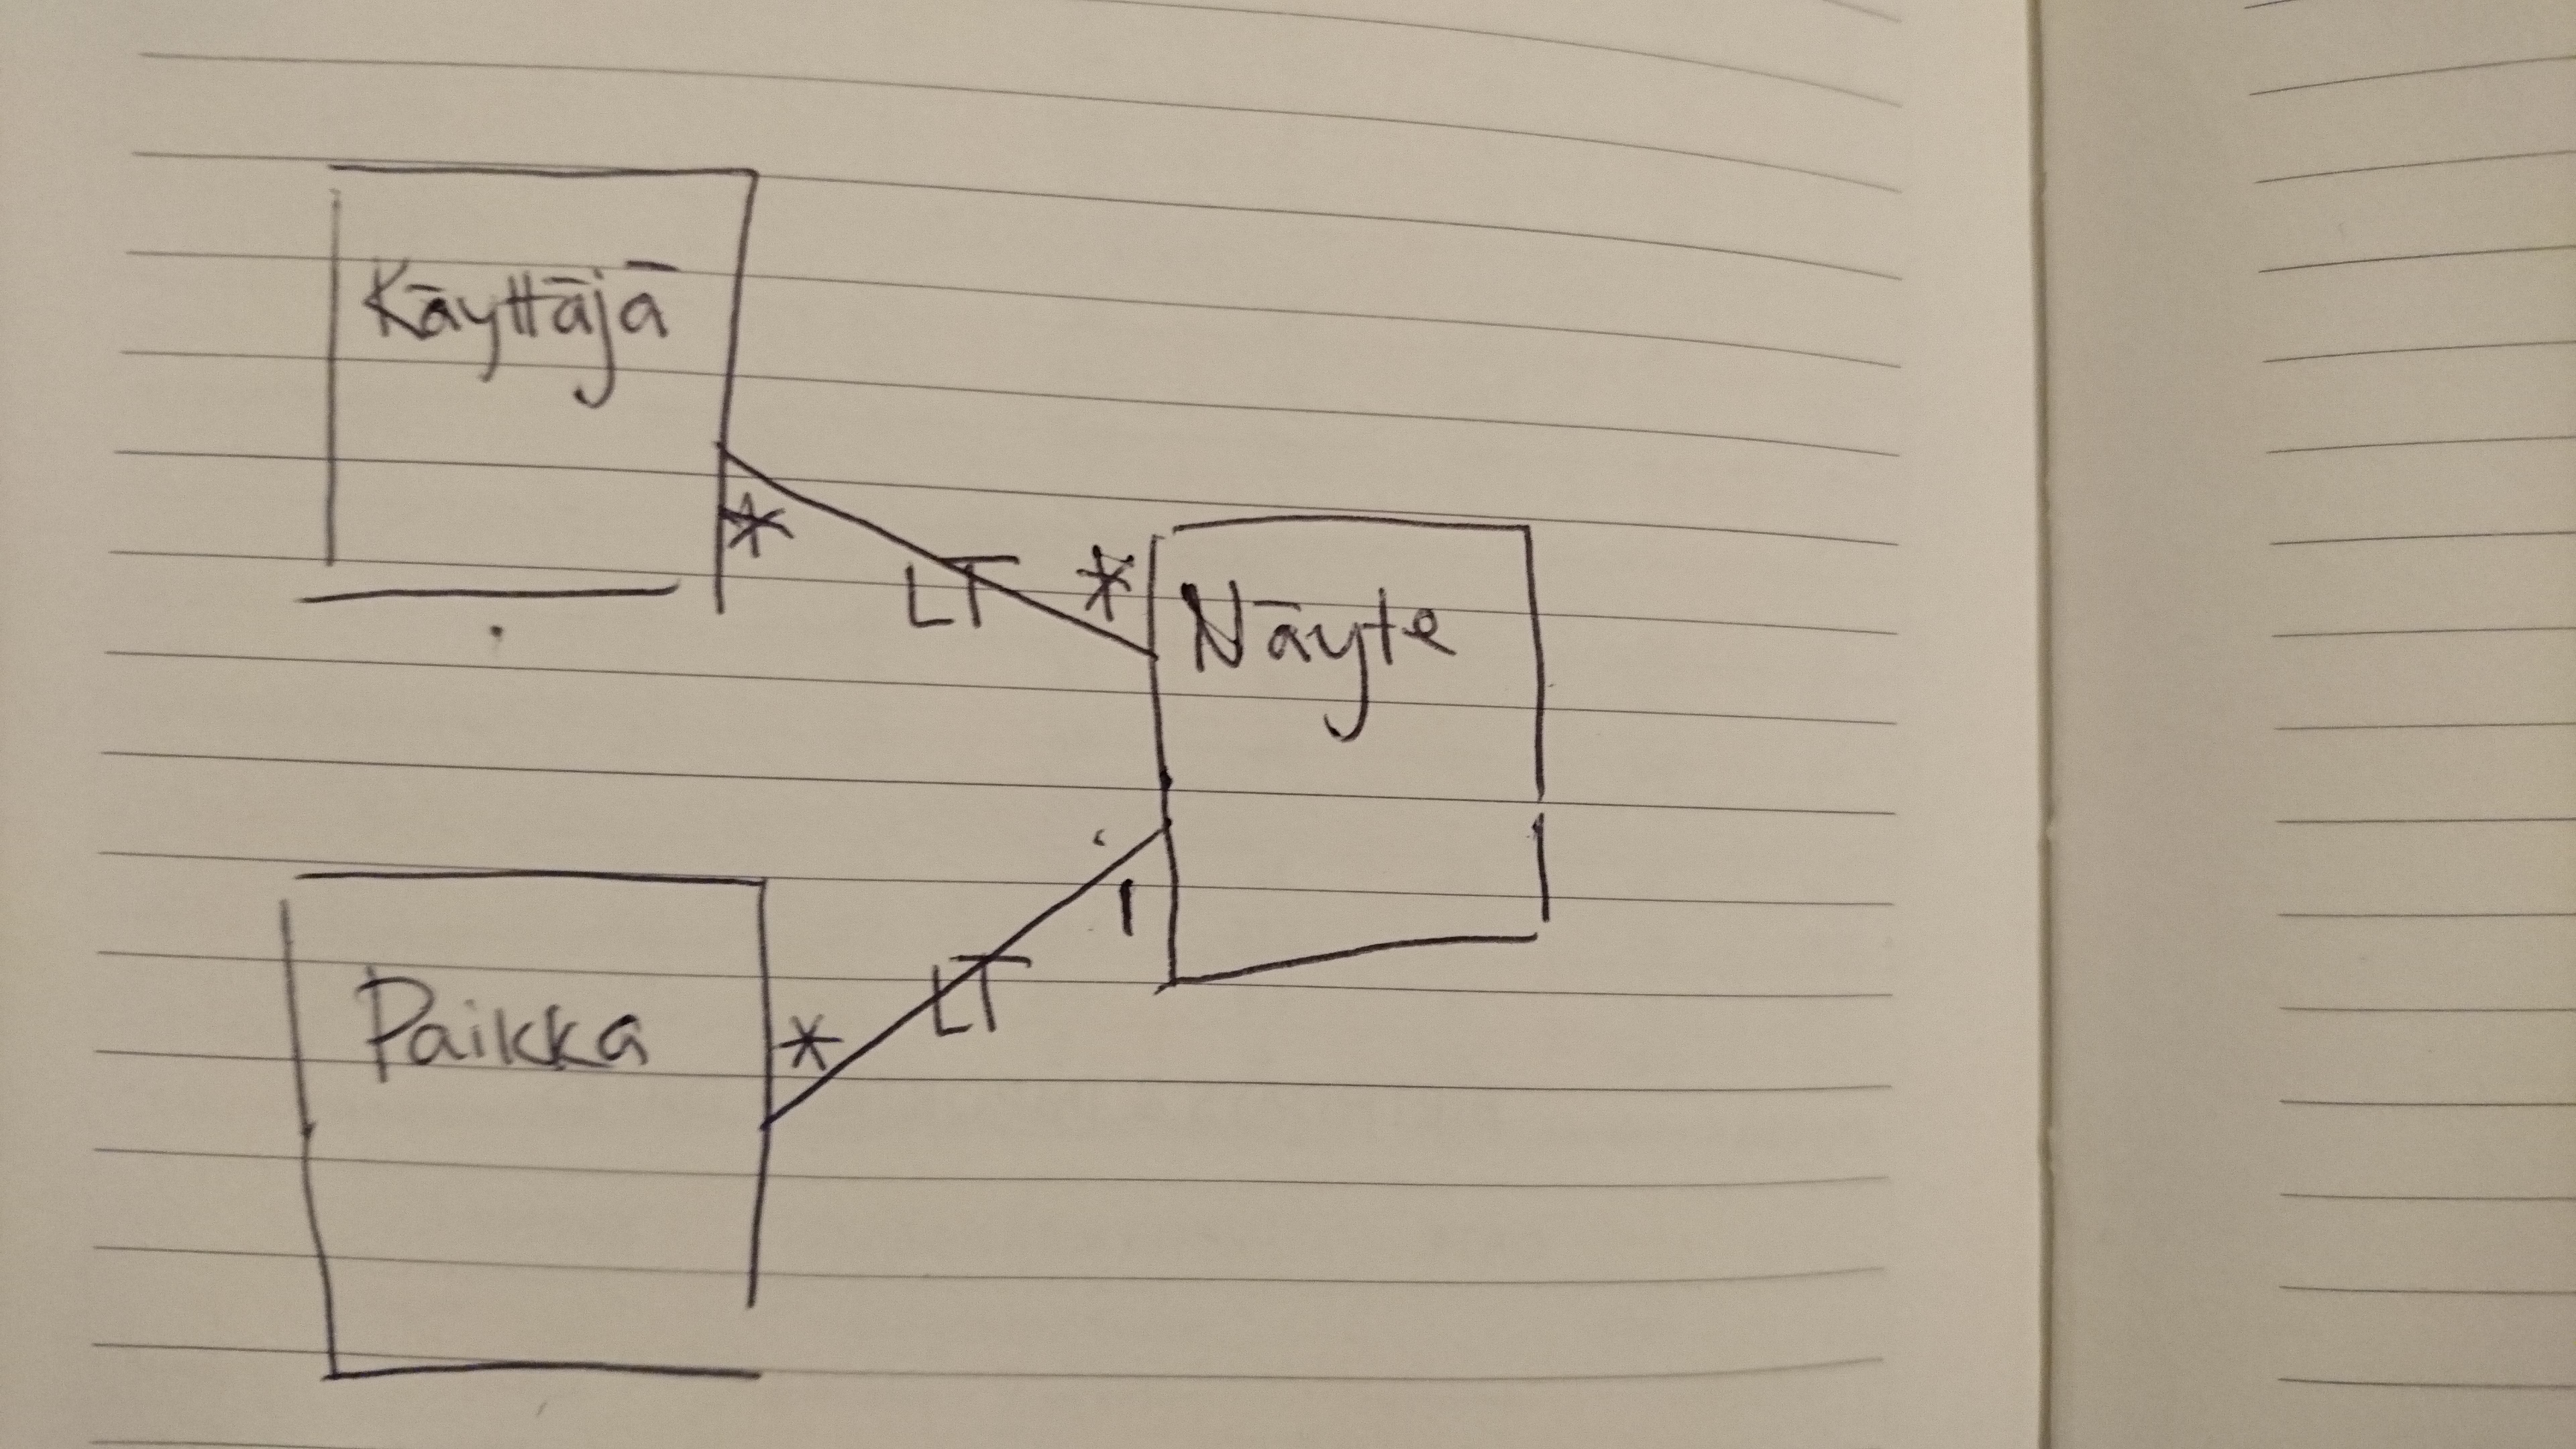 Käyttäjä
*
LT
*
Näyte
1
LT
*
Paikka